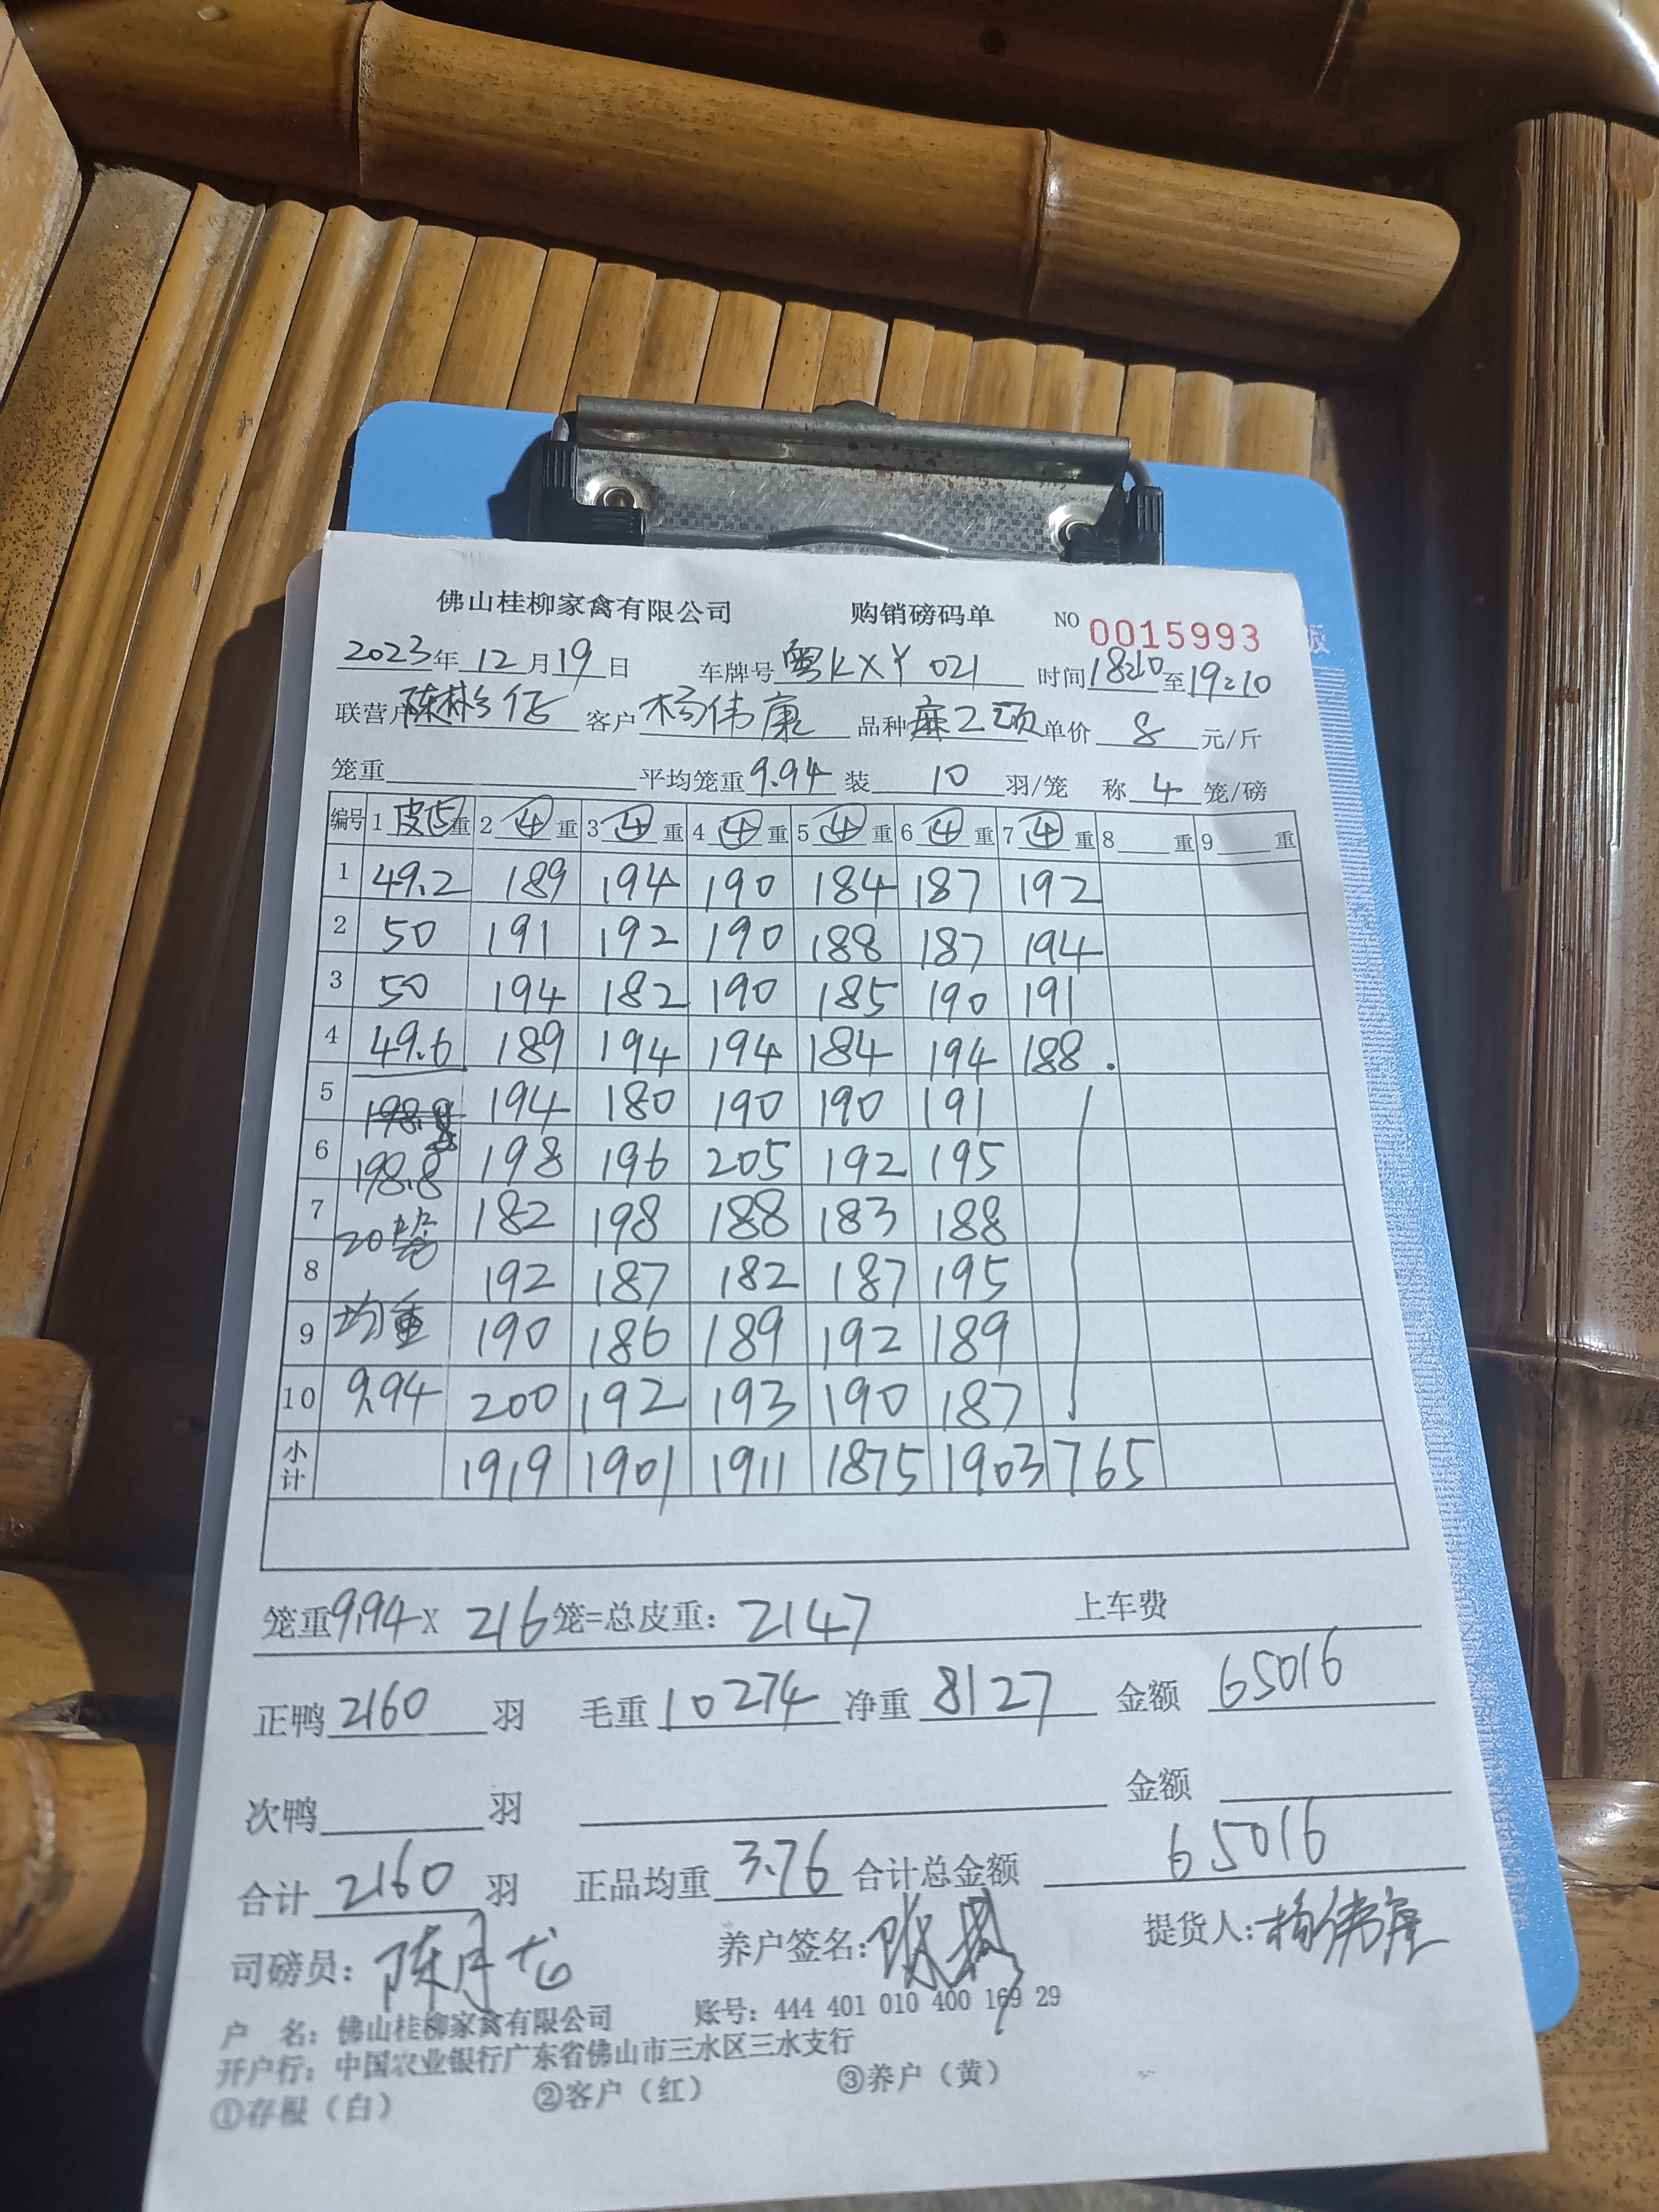 佛山桂柳家禽有限公司 购销磅码单 NO 0015993
2023年 12月19日 车牌号 粤KXY 021 时间 18:10 至 19:10
联营户 客户 杨伟康 品种 麻 单价 8 元/斤
笼重 平均笼重 9.94 装 10 羽/笼 称 4 笼/磅
编号 1 皮 重 2 ④ 重 3 ④ 重 4 ④ 重 5 ④ 重 6 ④ 重 7 ④ 重 8 重 9 重
1 49.2 189 194 190 184 187 192
2 50 191 192 190 188 187 194
3 50 194 182 190 185 190 191
4 49.6 189 194 194 184 194 188.
5 194 180 190 190 191
6 198.8 198 196 205 192 195
7 20笼 182 198 188 183 188
8 192 187 182 187 195
9 均重 190 186 189 192 189
10 9.94 200 192 193 190 187
小计 1919 1901 1911 1875 1903 765
笼重 9.94 X 216 笼=总皮重: 2147 上车费
正鸭 2160 羽 毛重 10274 净重 8127 金额 65016
次鸭 羽 金额
合计 2160 羽 正品均重 3.76 合计总金额 65016
司磅员: 陈月龙 养户签名: 提货人: 杨伟康
户 名: 佛山桂柳家禽有限公司 账号: 444 401 010 400 169 29
开户行: 中国农业银行广东省佛山市三水区三水支行
①存根（白） ②客户（红） ③养户（黄）